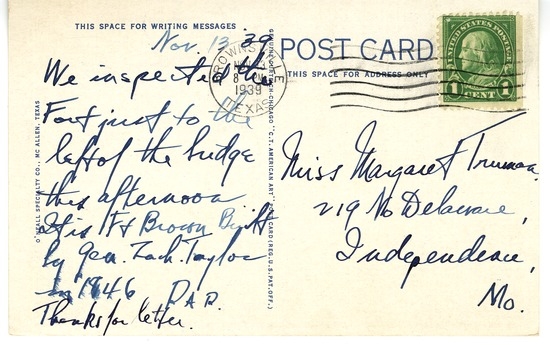 THIS SPACE FOR WRITING MESSAGES
Nov. 13 '39
We inspected the
Fort just to the
left of the bridge
this afternoon
It is Ft Brown Built
by Gen. Zach. Taylor
in 1846 DAD.
Thanks for letter.
O'NEALL SPECIALTY CO., MC ALLEN, TEXAS
GENUINE CURTEICH-CHICAGO "C.T. AMERICAN ART" POST CARD (REG. U.S. PAT. OFF.)
POST CARD
THIS SPACE FOR ADDRESS ONLY
BROWNSVILLE
1939
TEXAS
UNITED STATES POSTAGE
1 CENT 1
Miss Margaret Truman,
219 No Delaware,
Independence,
Mo.